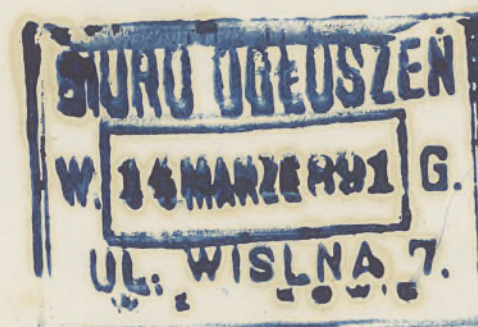 BIURO OGŁOSZEŃ
W. 14 MARZEC 91 G.
UL. WISLNA 7.